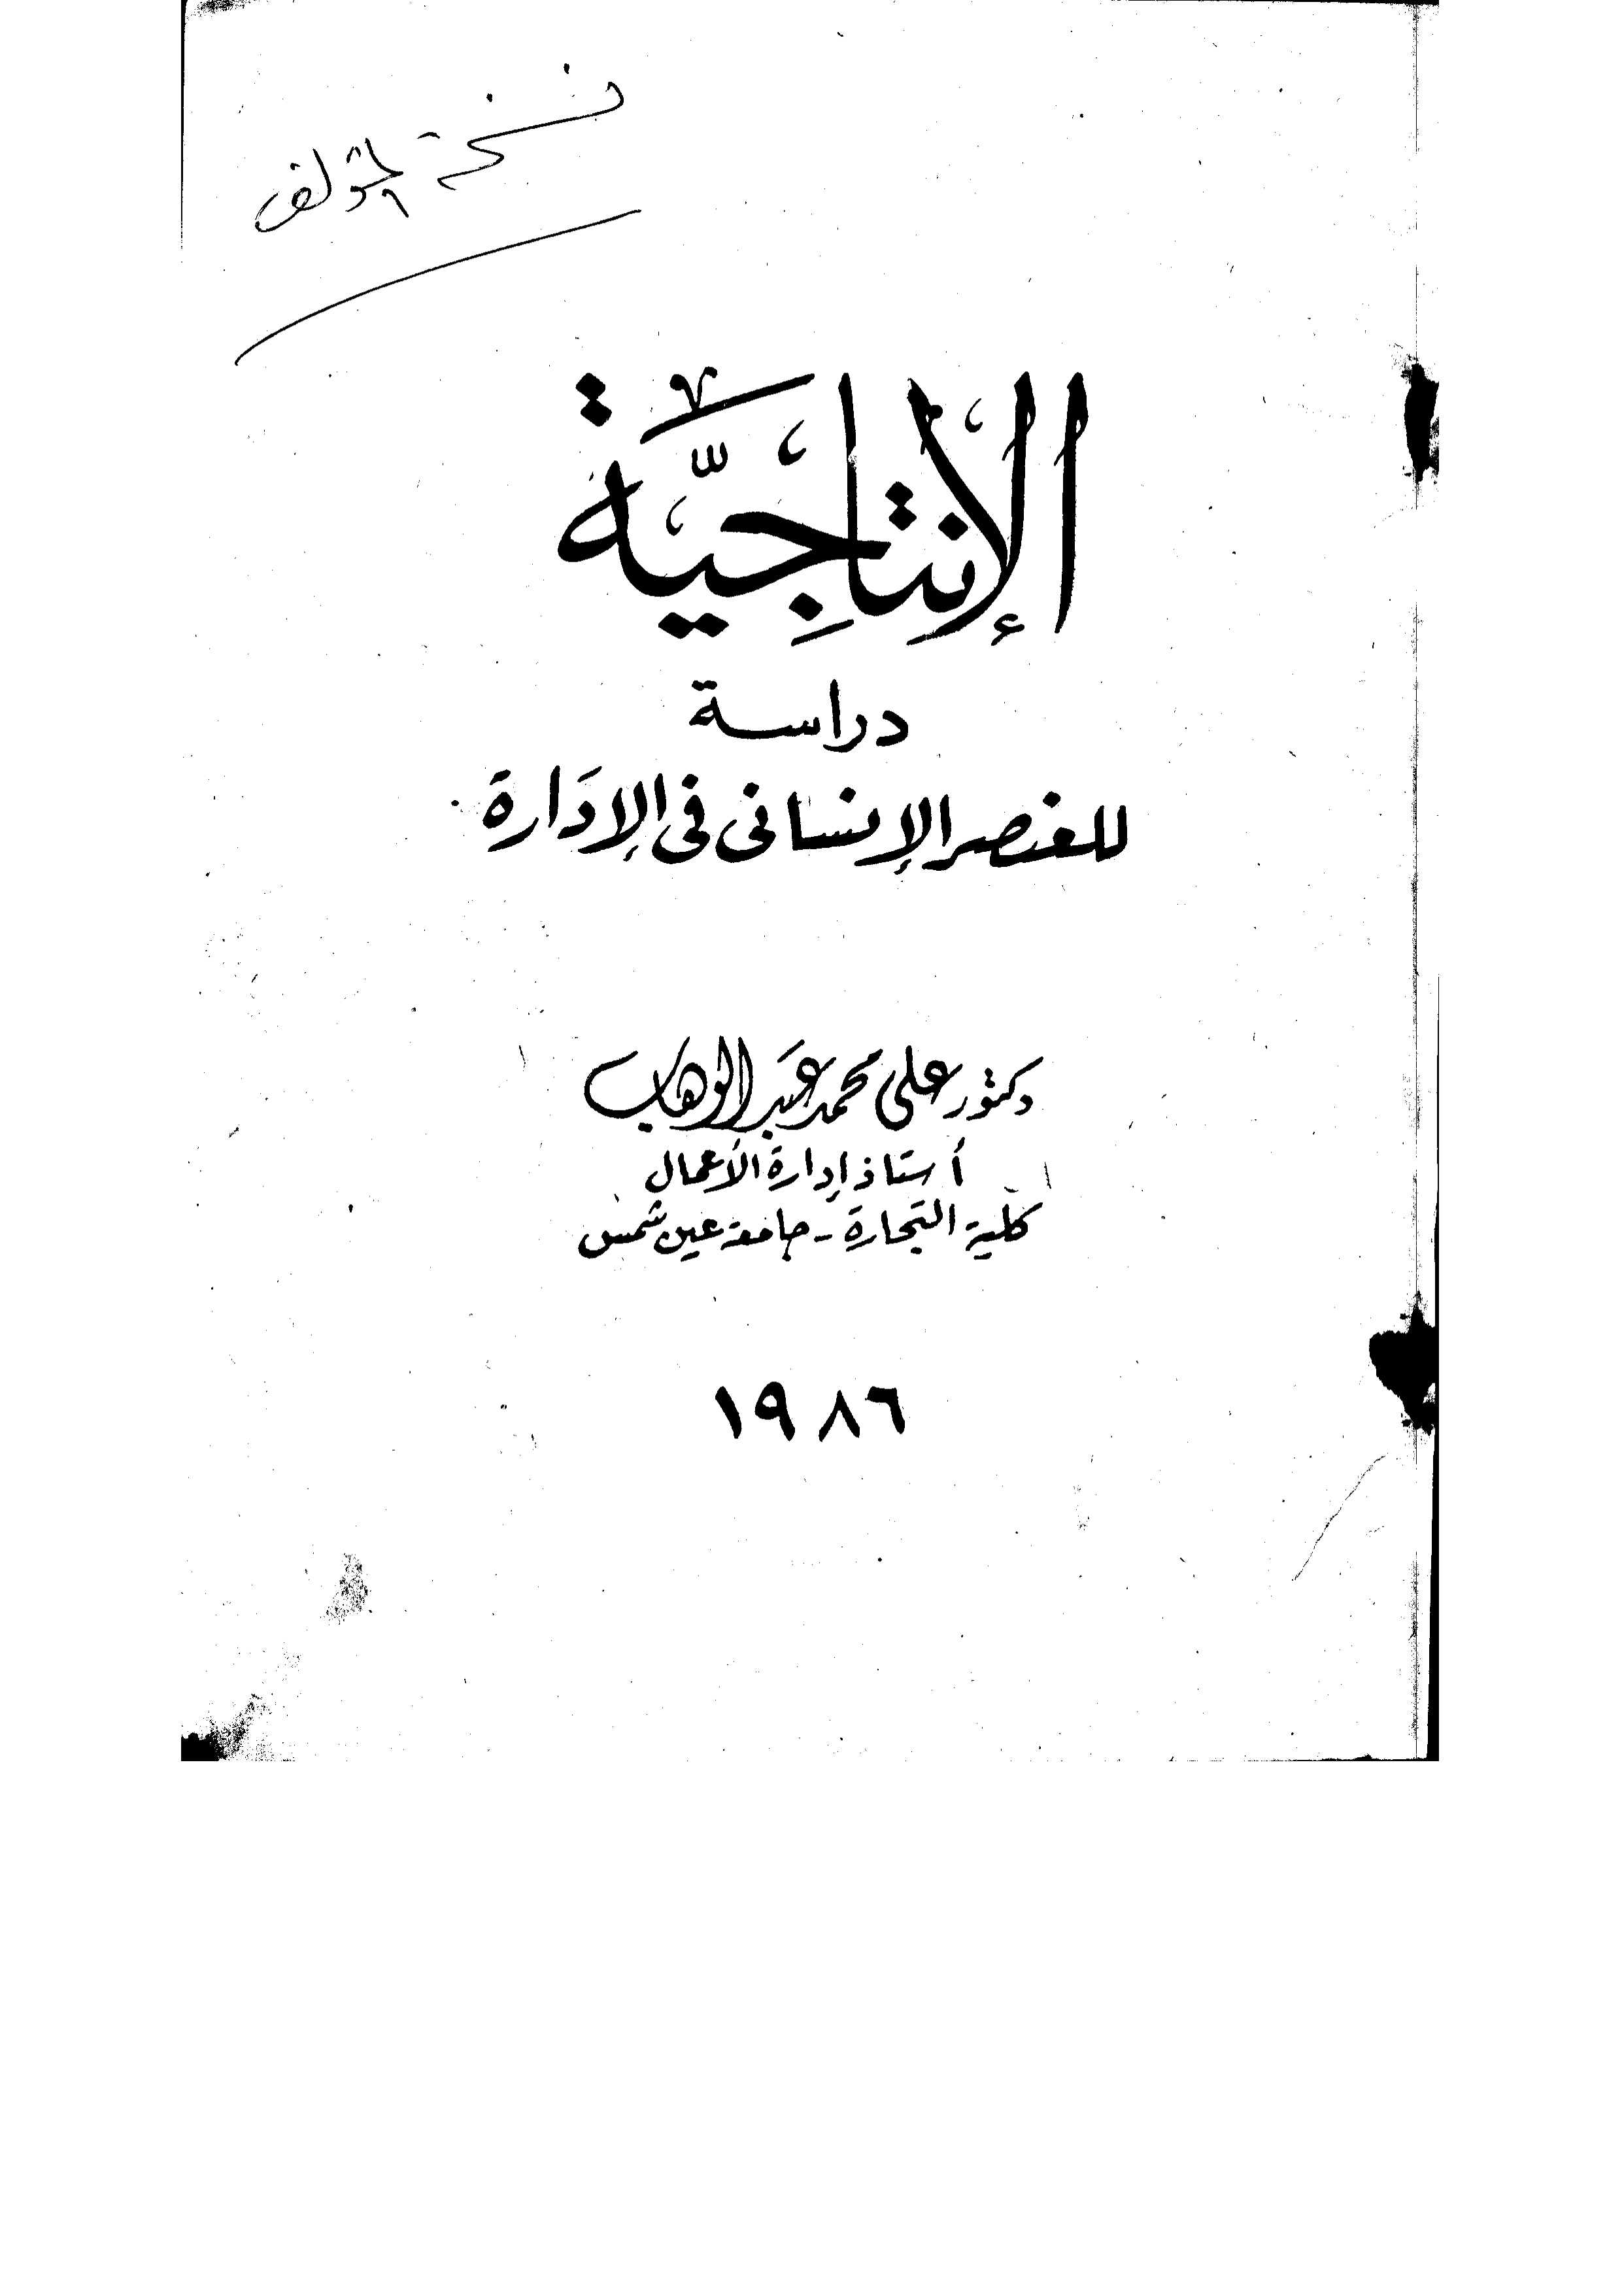 نسخة المؤلف
الإنتاجيَّة
دراسة
للعنصر الإنسانى فى الإدارة
دكتور على محمد عبد الوهاب
أستاذ إدارة الأعمال
كلية التجارة - جامعة عين شمس
١٩٨٦